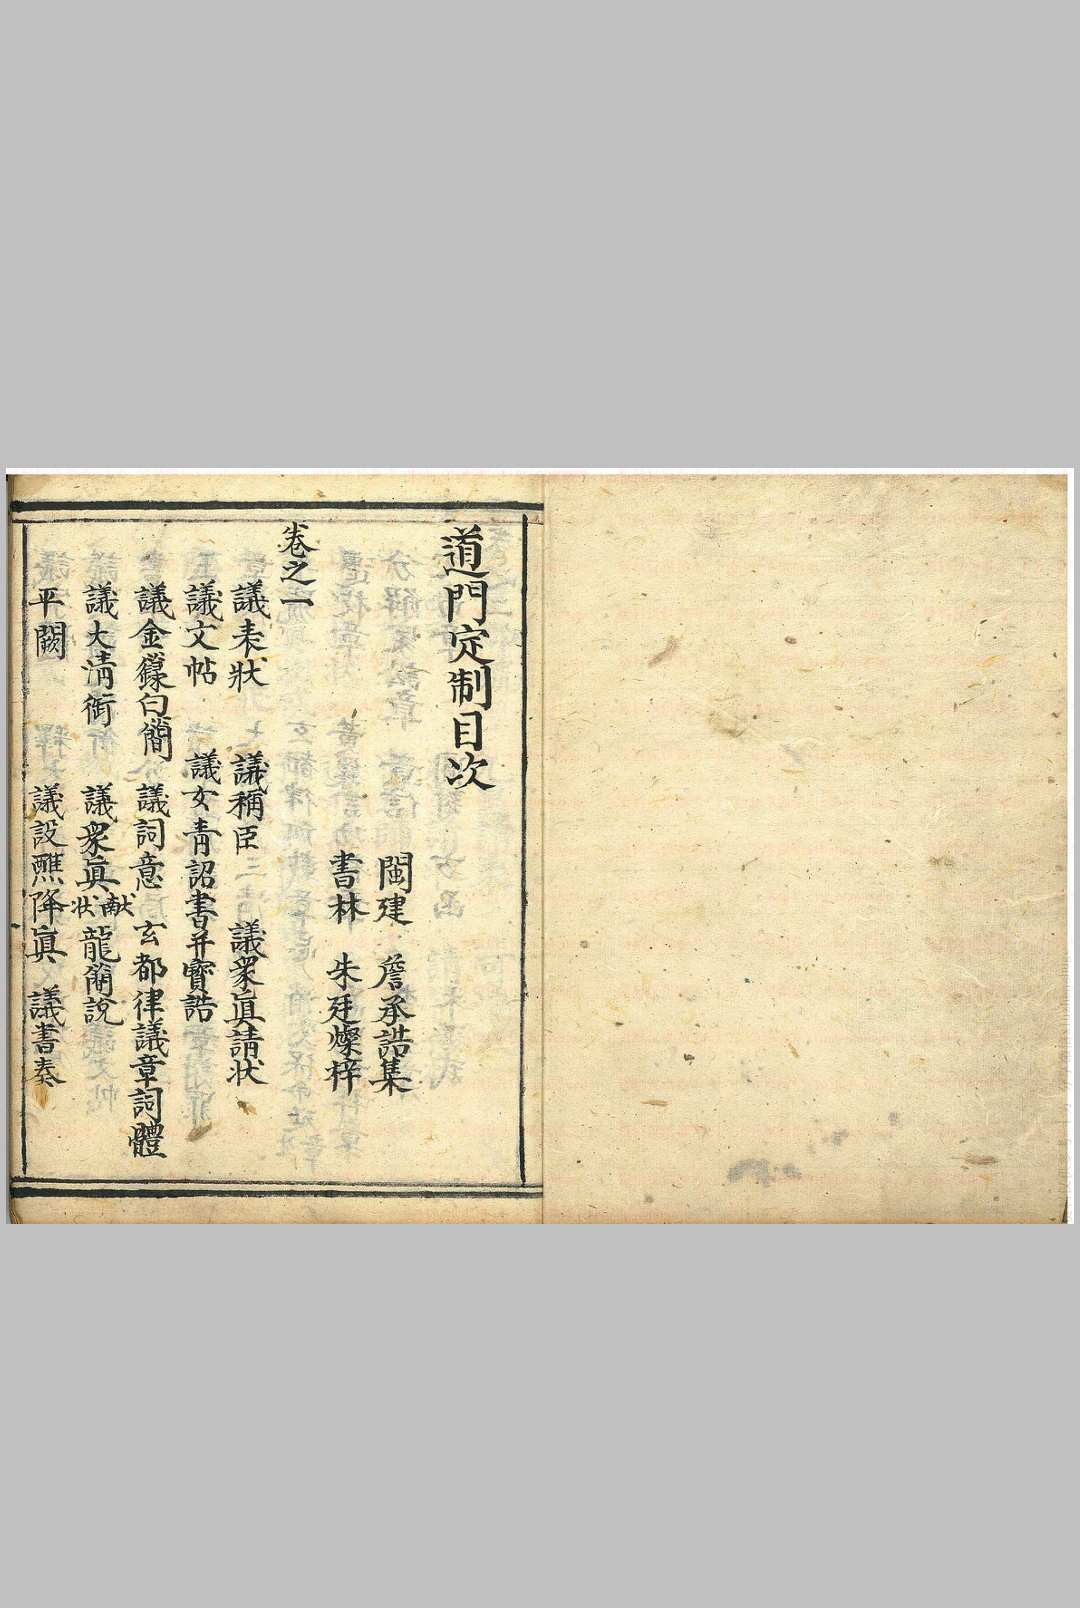 道門定制目次
閩建　詹承誥集
書林　朱廷燦梓
卷之一
議表狀　議稱臣　議衆眞請狀
議文帖　議女青詔書并寳誥
議金籙白簡　議詞意　玄都律議章詞體
議大清銜　議衆眞献狀　龍簡說
平闕　議設醮降眞　議書奏